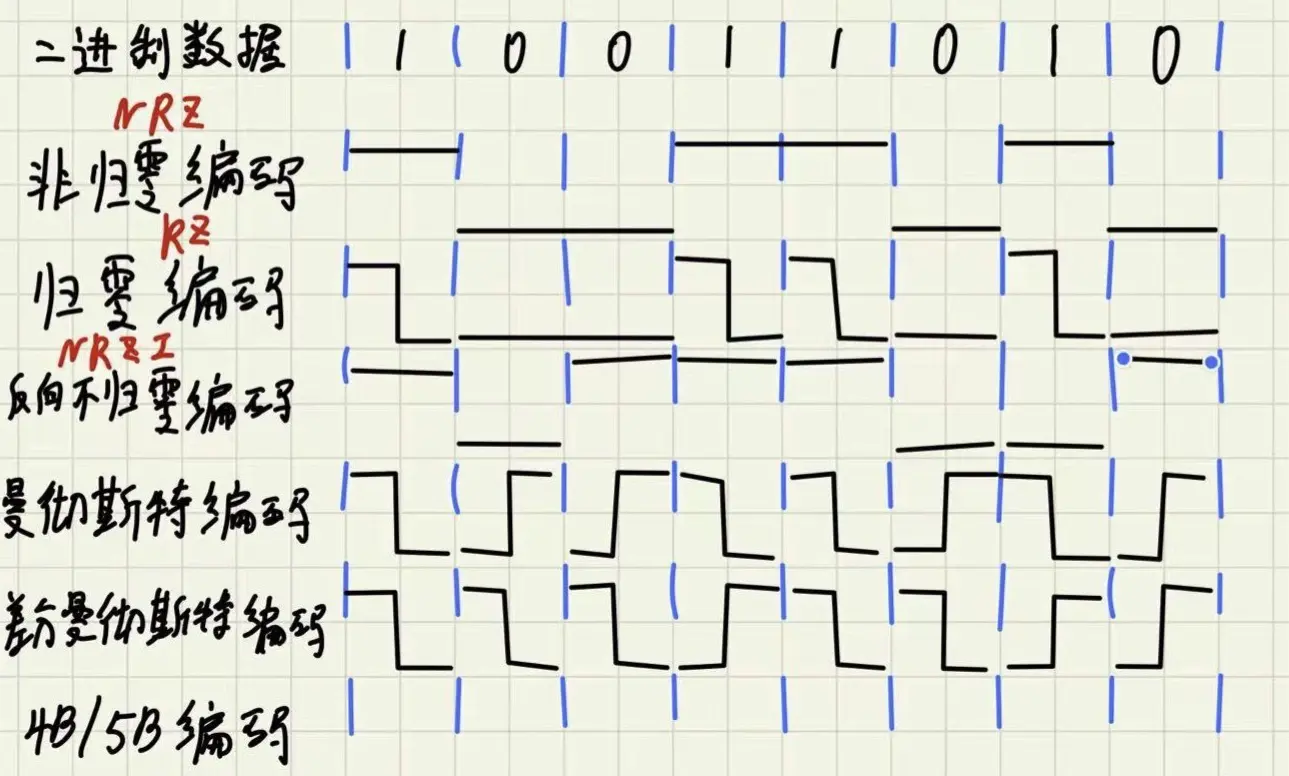 二进制数据 1 0 0 1 1 0 1 0
NRZ
非归零编码
RZ
归零编码
NRZI
反向不归零编码
曼彻斯特编码
差分曼彻斯特编码
4B/5B编码